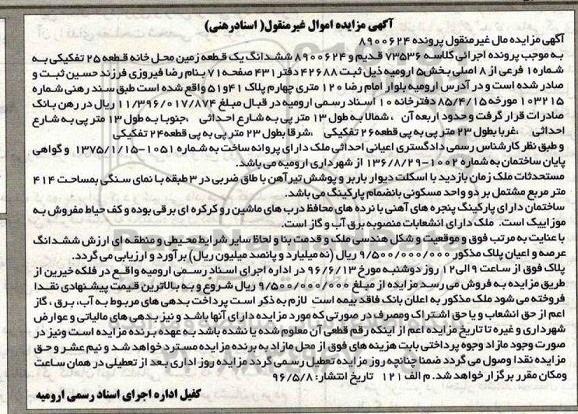 آگهی مزایده اموال غیرمنقول( اسنادرهنی)
آگهی مزایده مال غیرمنقول پرونده ۸۹۰۰۶۲۴
به موجب پرونده اجرائی کلاسه ۷۳۵۳۶ قدیم و ۸۹۰۰۶۲۴ ششدانگ یک قطعه زمین محل خانه قطعه ۲۵ تفکیکی به
شماره ۱ فرعی از ۸ اصلی بخش۵ ارومیه ذیل ثبت ۴۲۶۸۸ دفتر ۴۳۱ صفحه ۷۱ بنام رضا فیروزی فرزند حسین ثبت و
صادر شده است و در آدرس ارومیه بلوار امام رضا ۱۲۰ متری چهارم پلاک ۴۱و۵۱ واقع شده است طبق سند رهنی شماره
۱۰۳۲۱۵ مورخه ۸۵/۴/۱۵ دفترخانه ۱۰ اسناد رسمی ارومیه در قبال مبلغ ۱۱/۳۹۶/۰۱۷/۸۷۴ ریال در رهن بانک
صادرات قرار گرفت و حدود اربعه آن ،شمالا به طول ۱۳ متر پی به شارع احداثی ،جنوبا به طول ۱۳ متر پی به شارع
احداثی ،غربا بطول ۲۳ متر پی به پی قطعه ۲۶ تفکیکی ،شرقا بطول ۲۳ متر پی به پی قطعه ۲۴ تفکیکی
و طبق نظر کارشناس رسمی دادگستری اعیانی احداثی ملک دارای پروانه ساخت به شماره ۱۰۵۱-۱۳۷۵/۱/۱۵ و گواهی
پایان ساختمان به شماره ۱۰۰۲-۱۳۶/۸/۲۹ از شهرداری ارومیه می باشد.
مستحدثات ملک زمان بازدید با اسکلت دیوار باربر و پوشش تیرآهن با طاق ضربی در ۳ طبقه با نمای سنگی بمساحت ۴۱۴
متر مربع مشتمل بر دو واحد مسکونی بانضمام پارکینگ می باشد.
ساختمان دارای پارکینگ پنجره های آهنی با نرده های محافظ درب های ماشین رو کرکره ای برقی بوده و کف حیاط مفروش به
موزاییک است. ملک دارای انشعابات منصوبه برق آب و گاز است.
با عنایت به مرتب فوق و موقعیت و شکل هندسی ملک و قدمت بنا و لحاظ سایر شرایط محیطی و منطقه ای ارزش ششدانگ
عرصه و اعیان پلاک مذکور ۹/۵۰۰/۰۰۰/۰۰۰ ریال (نه میلیارد و پانصد میلیون ریال) برآورد و ارزیابی می گردد.
پلاک فوق از ساعت ۹ الی ۱۲ روز دوشنبه مورخ ۹۶/۶/۱۳ در اداره اجرای اسناد رسمی ارومیه واقع در فلکه خیرین از
طریق مزایده به فروش می رسد مزایده از مبلغ ۹/۵۰۰/۰۰۰/۰۰۰ ریال شروع و به بالاترین قیمت پیشنهادی نقدا
فروخته می شود ملک مذکور به اعلان بانک فاقد بیمه است لازم به ذکر است پرداخت بدهی های مربوط به آب، برق، گاز
اعم از حق انشعاب و یا حق اشتراک و مصرف در صورتی که مورد مزایده دارای آنها باشد و نیز بدهی های مالیاتی و عوارض
شهرداری و غیره تا تاریخ مزایده اعم از اینکه رقم قطعی آن معلوم شده یا نشده باشد به عهده برنده مزایده است ونیز در
صورت وجود مازاد وجوه پرداختی بابت هزینه های فوق از محل مازاد به برنده مزایده مسترد خواهد شد و نیم عشر و حق
مزایده نقدا وصول می گردد ضمنا چنانچه روز مزایده تعطیل رسمی گردد مزایده روز اداری بعد از تعطیلی در همان ساعت
ومکان مقرر برگزار خواهد شد. م الف ۱۲۱ تاریخ انتشار: ۹۶/۵/۸
کفیل اداره اجرای اسناد رسمی ارومیه